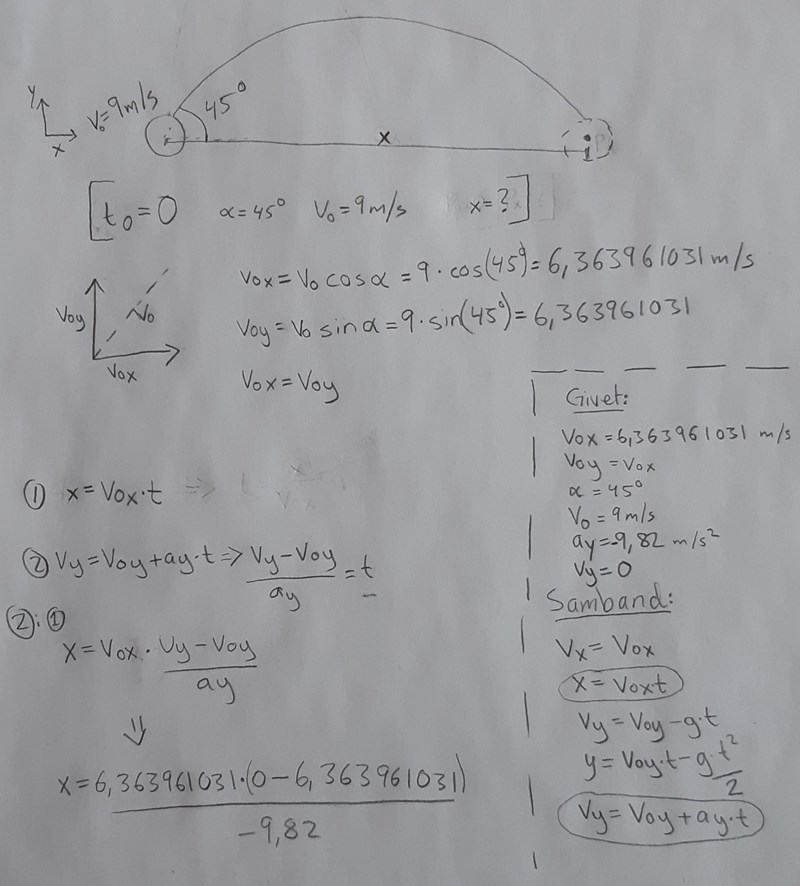 y
x
V₀=9m/s
45°
x
[t₀=0 α=45° V₀=9m/s x=?]
V₀y
V₀
V₀x
V₀x = V₀ cosα = 9·cos(45°)= 6,363961031 m/s
V₀y = V₀ sinα = 9·sin(45°)= 6,363961031
V₀x = V₀y
① x = V₀x·t =>
② Vy = V₀y + ay·t => (Vy - V₀y)/ay = t
②: ①
x = V₀x · (Vy - V₀y)/ay
⇓
x = 6,363961031·(0 - 6,363961031)/-9,82
Givet:
V₀x = 6,363961031 m/s
V₀y = V₀x
α = 45°
V₀ = 9m/s
ay = -9,82 m/s²
Vy = 0
Samband:
Vx = V₀x
x = V₀xt
Vy = V₀y - g·t
y = V₀y·t - g·t²/2
Vy = V₀y + ay·t